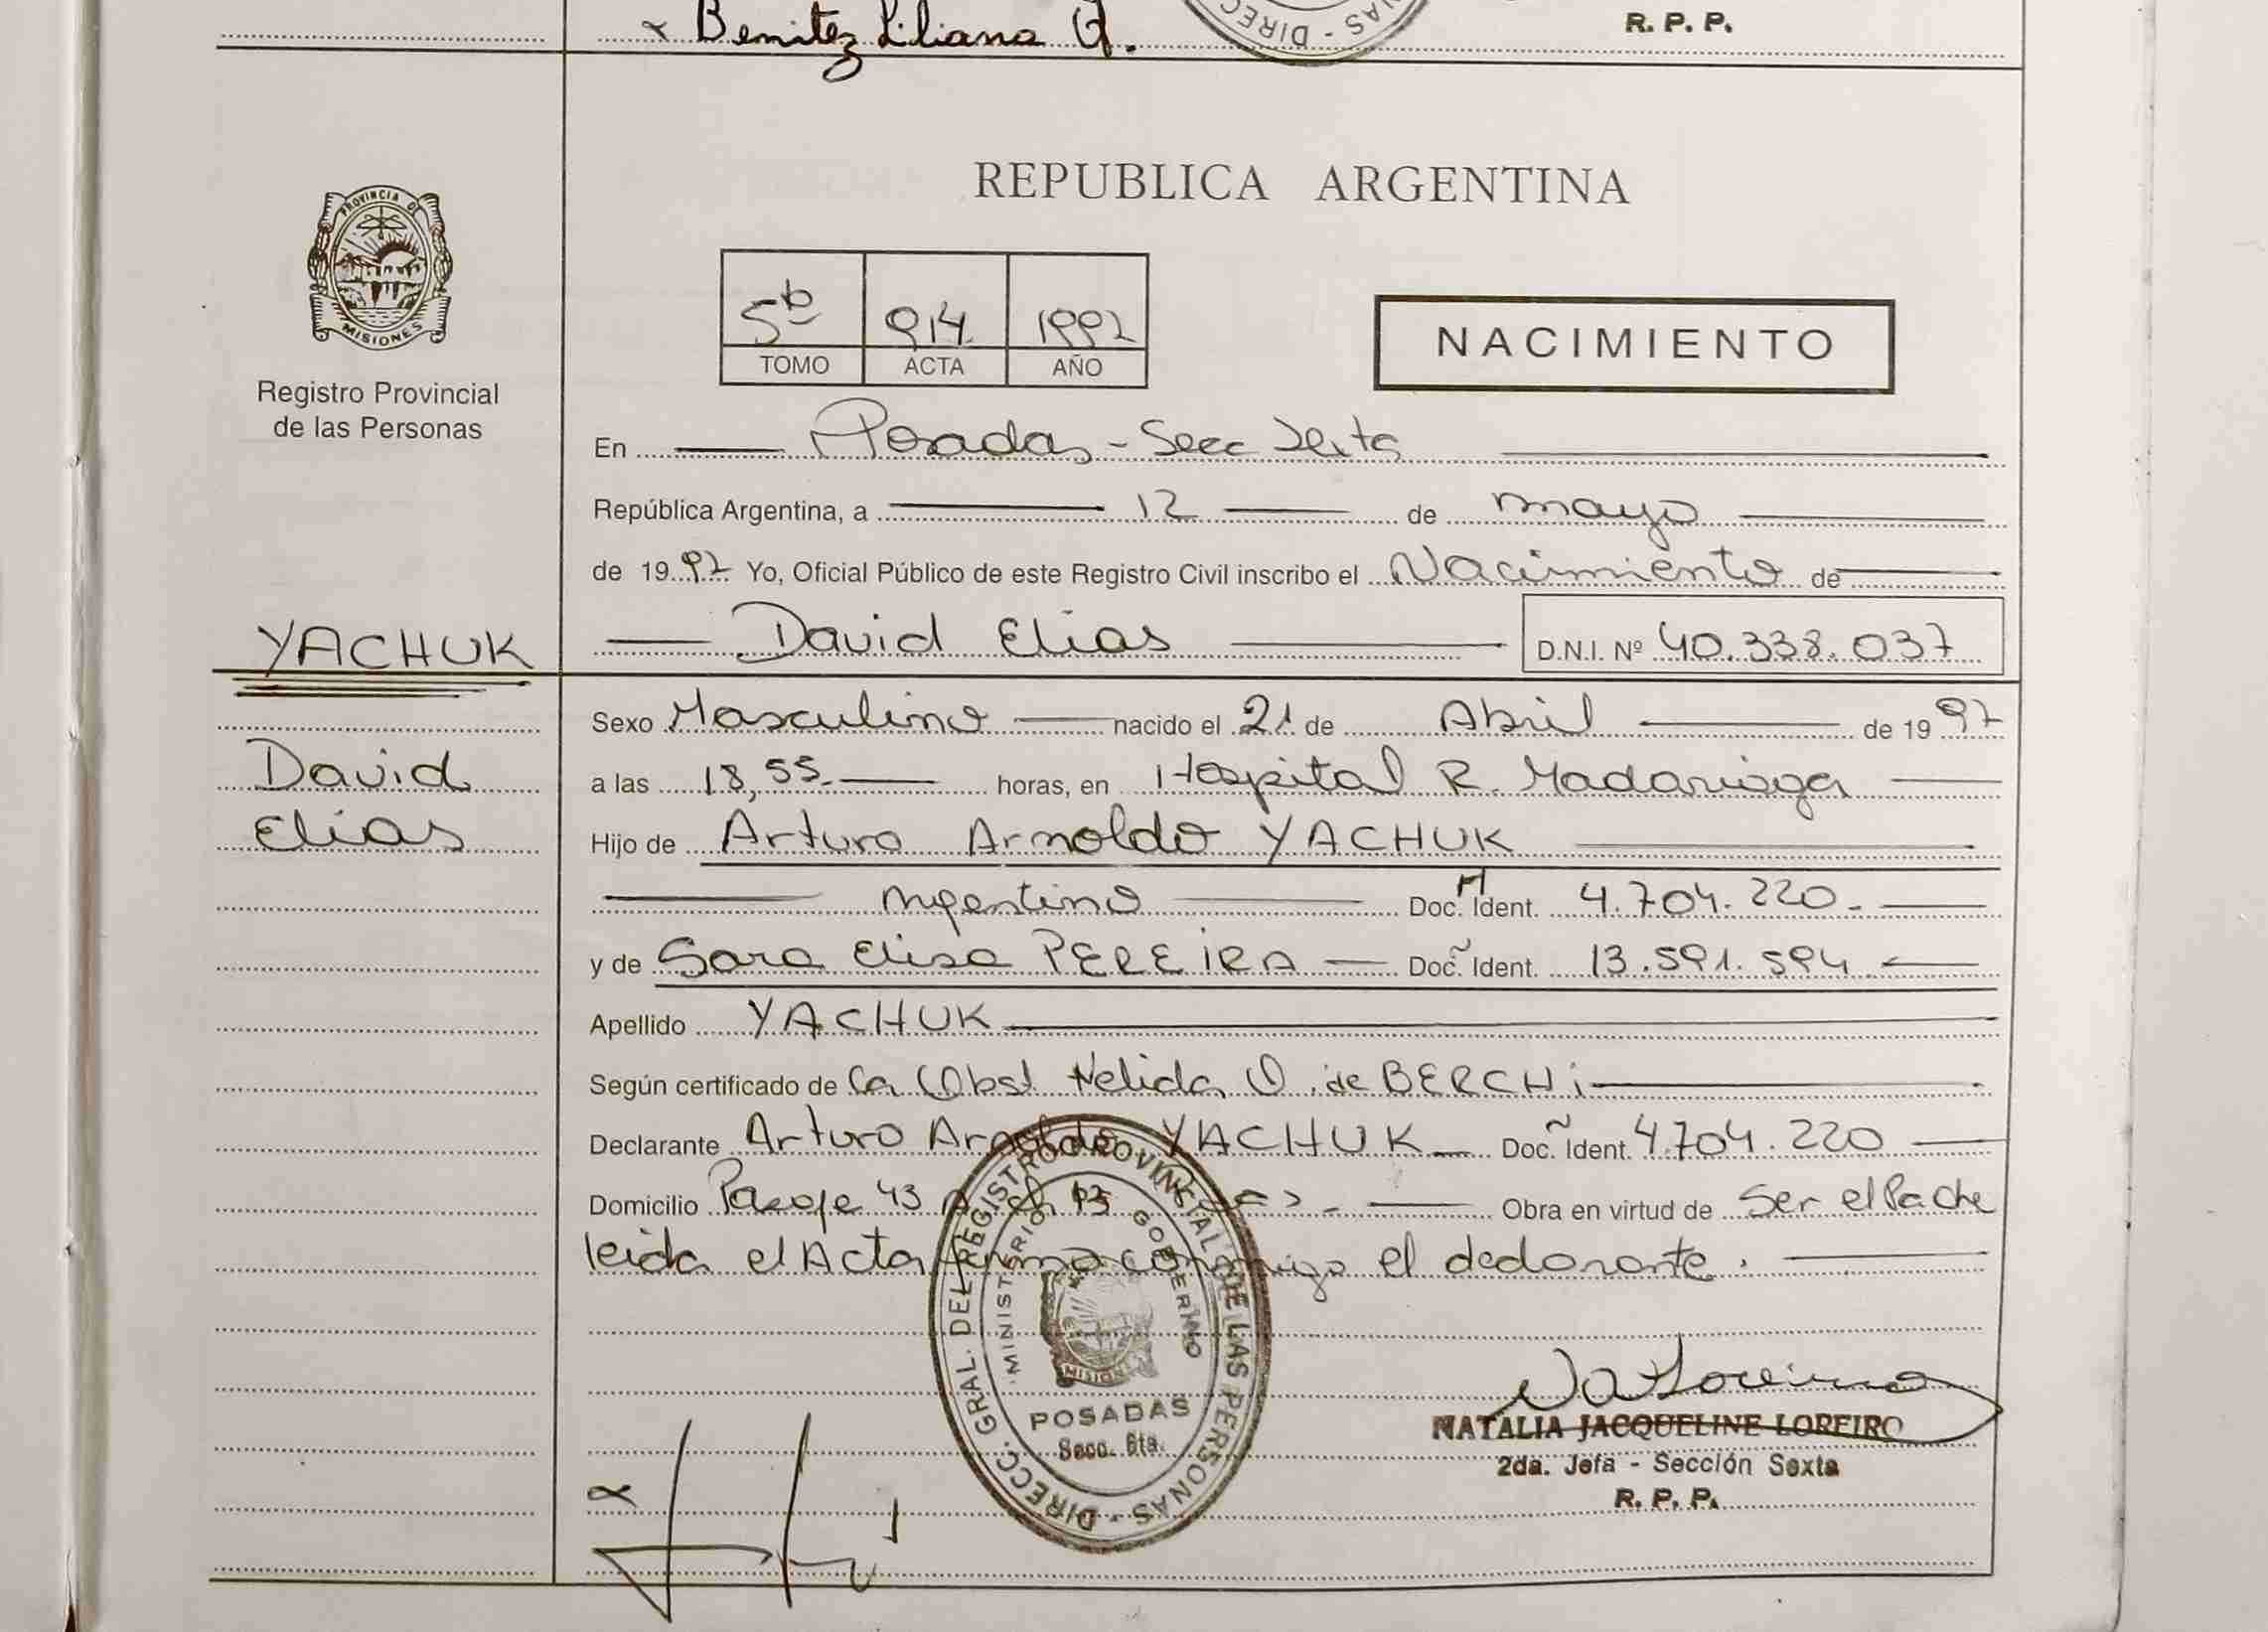 Benitez Liliana
R. P. P.
DIRECC
NAS
PROVINCIA DE
MISIONES
Registro Provincial
de las Personas
REPUBLICA ARGENTINA
5b 914 1997
TOMO ACTA AÑO
NACIMIENTO
En Posadas - Secc Sexta
República Argentina, a 12 de mayo
de 1997 Yo, Oficial Público de este Registro Civil inscribo el Nacimiento de
YACHUK
David Elias D.N.I. Nº 40.338.037
Sexo Masculino nacido el 21 de Abril de 1997
David
a las 18,55 horas, en Hospital R. Madariaga
Elias
Hijo de Arturo Arnoldo YACHUK
Argentino Doc. Ident. 4.704.220.-
y de Sara Elisa PEREIRA - Doc. Ident. 13.591.594
Apellido YACHUK
Según certificado de la Obst Nelida O. de BERCHi
Declarante Arturo Arnoldo YACHUK Doc. Ident. 4.704.220
Domicilio Pasaje 43 Obra en virtud de Ser el Padre
leida el Acta firma conmigo el declarante.
DIRECC. GRAL. DEL REGISTRO PROVINCIAL DE LAS PERSONAS
MINISTERIO GOBIERNO
MISIONES
POSADAS
Secc. 6ta.
NATALIA JACQUELINE LOREIRO
2da. Jefa - Sección Sexta
R. P. P.